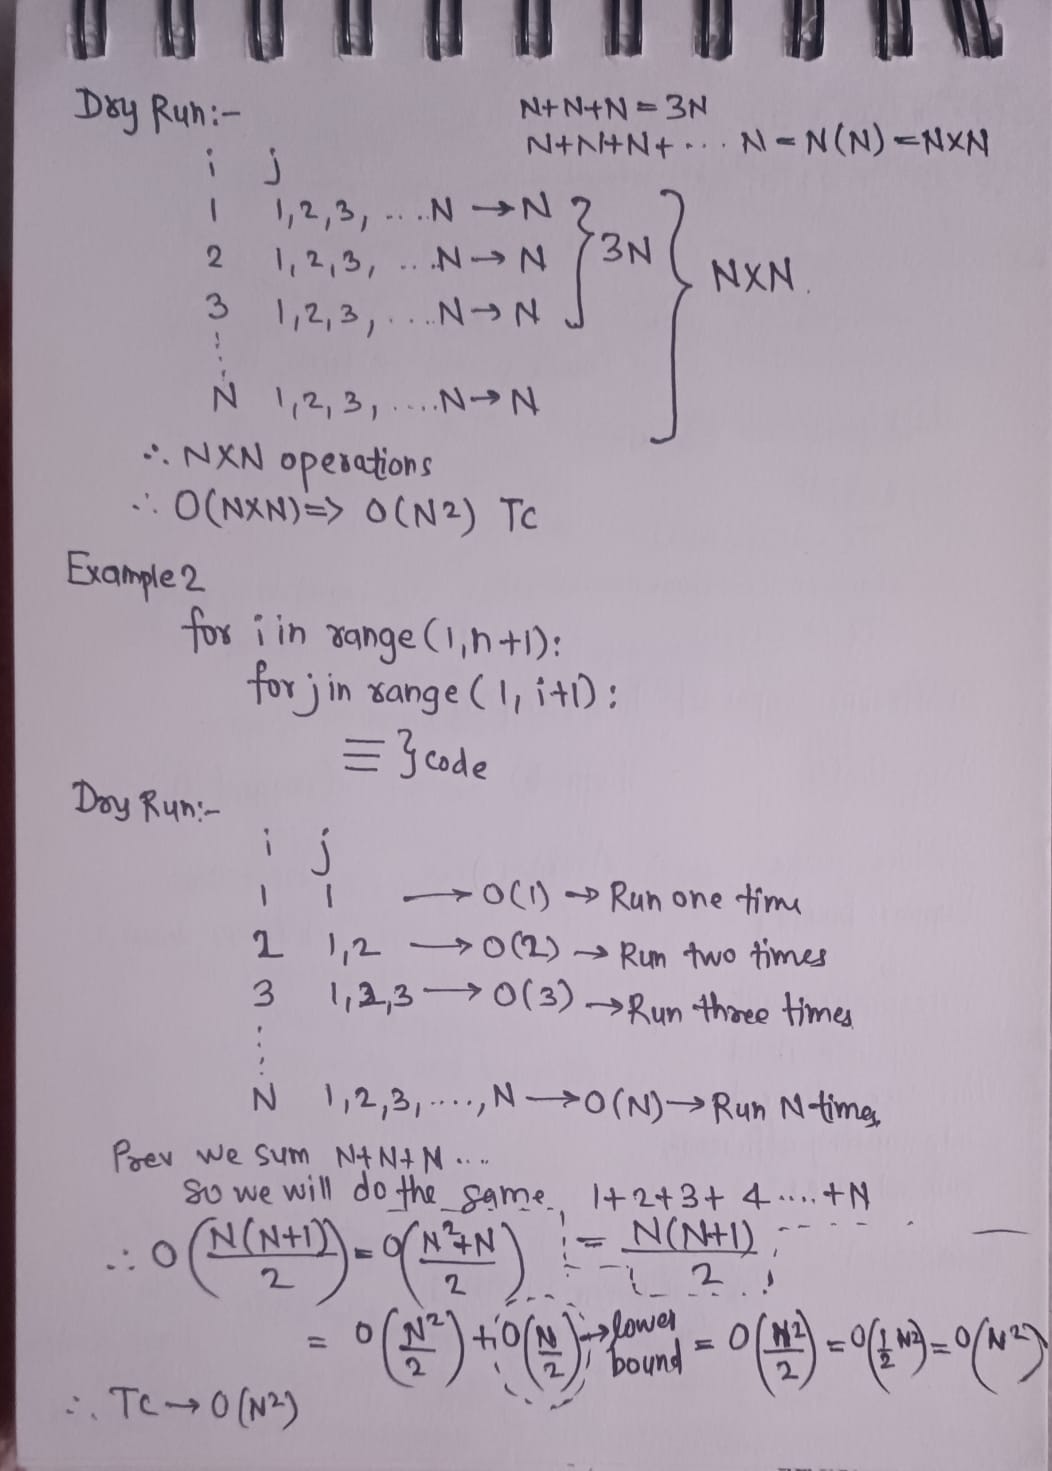 Dry Run:-
N+N+N = 3N
N+N+N+... N = N(N) = NxN
i j
1 1,2,3, ....N → N
2 1,2,3, ...N → N } 3N } NXN.
3 1,2,3, ....N → N
⋮
N 1,2,3, ....N → N
∴ NXN operations
∴ O(NXN) => O(N2) TC
Example 2
for i in range (1,n+1):
for j in range (1, i+1):
≡ } code
Dry Run:-
i j
1 1 → O(1) → Run one time
2 1,2 → O(2) → Run two times
3 1,2,3 → O(3) → Run three times
⋮
N 1,2,3,....,N → O(N) → Run N-times
Prev we sum N+N+N ....
so we will do the same, 1+2+3+ 4 ....+N
∴ O(N(N+1)/2) = O(N²+N/2) = N(N+1)/2
= O(N²/2) + O(N/2) → lower bound = O(N2/2) = O(1/2 N²) = O(N²)
∴ TC → O(N2)